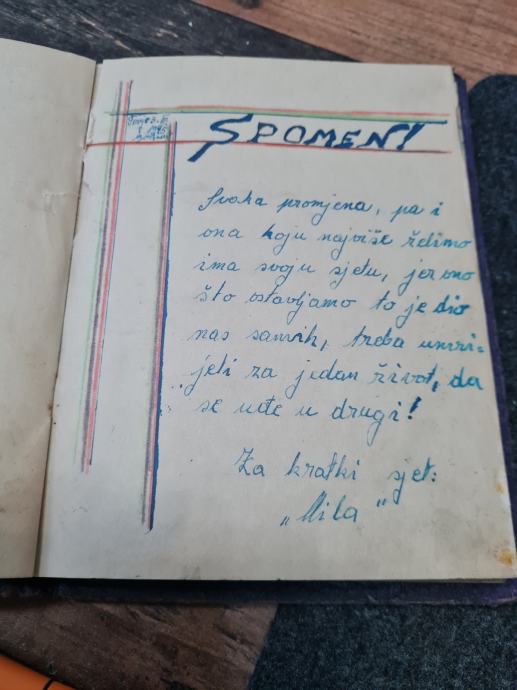 SPOMEN!
Svaka promjena, pa i
ona koju najviše želimo
ima svoju sjetu, jer ono
što ostavljamo to je dio
nas samih, treba umri=
jeti za jedan život, da
se uđe u drugi!
Za kratki sjet:
„Mila"